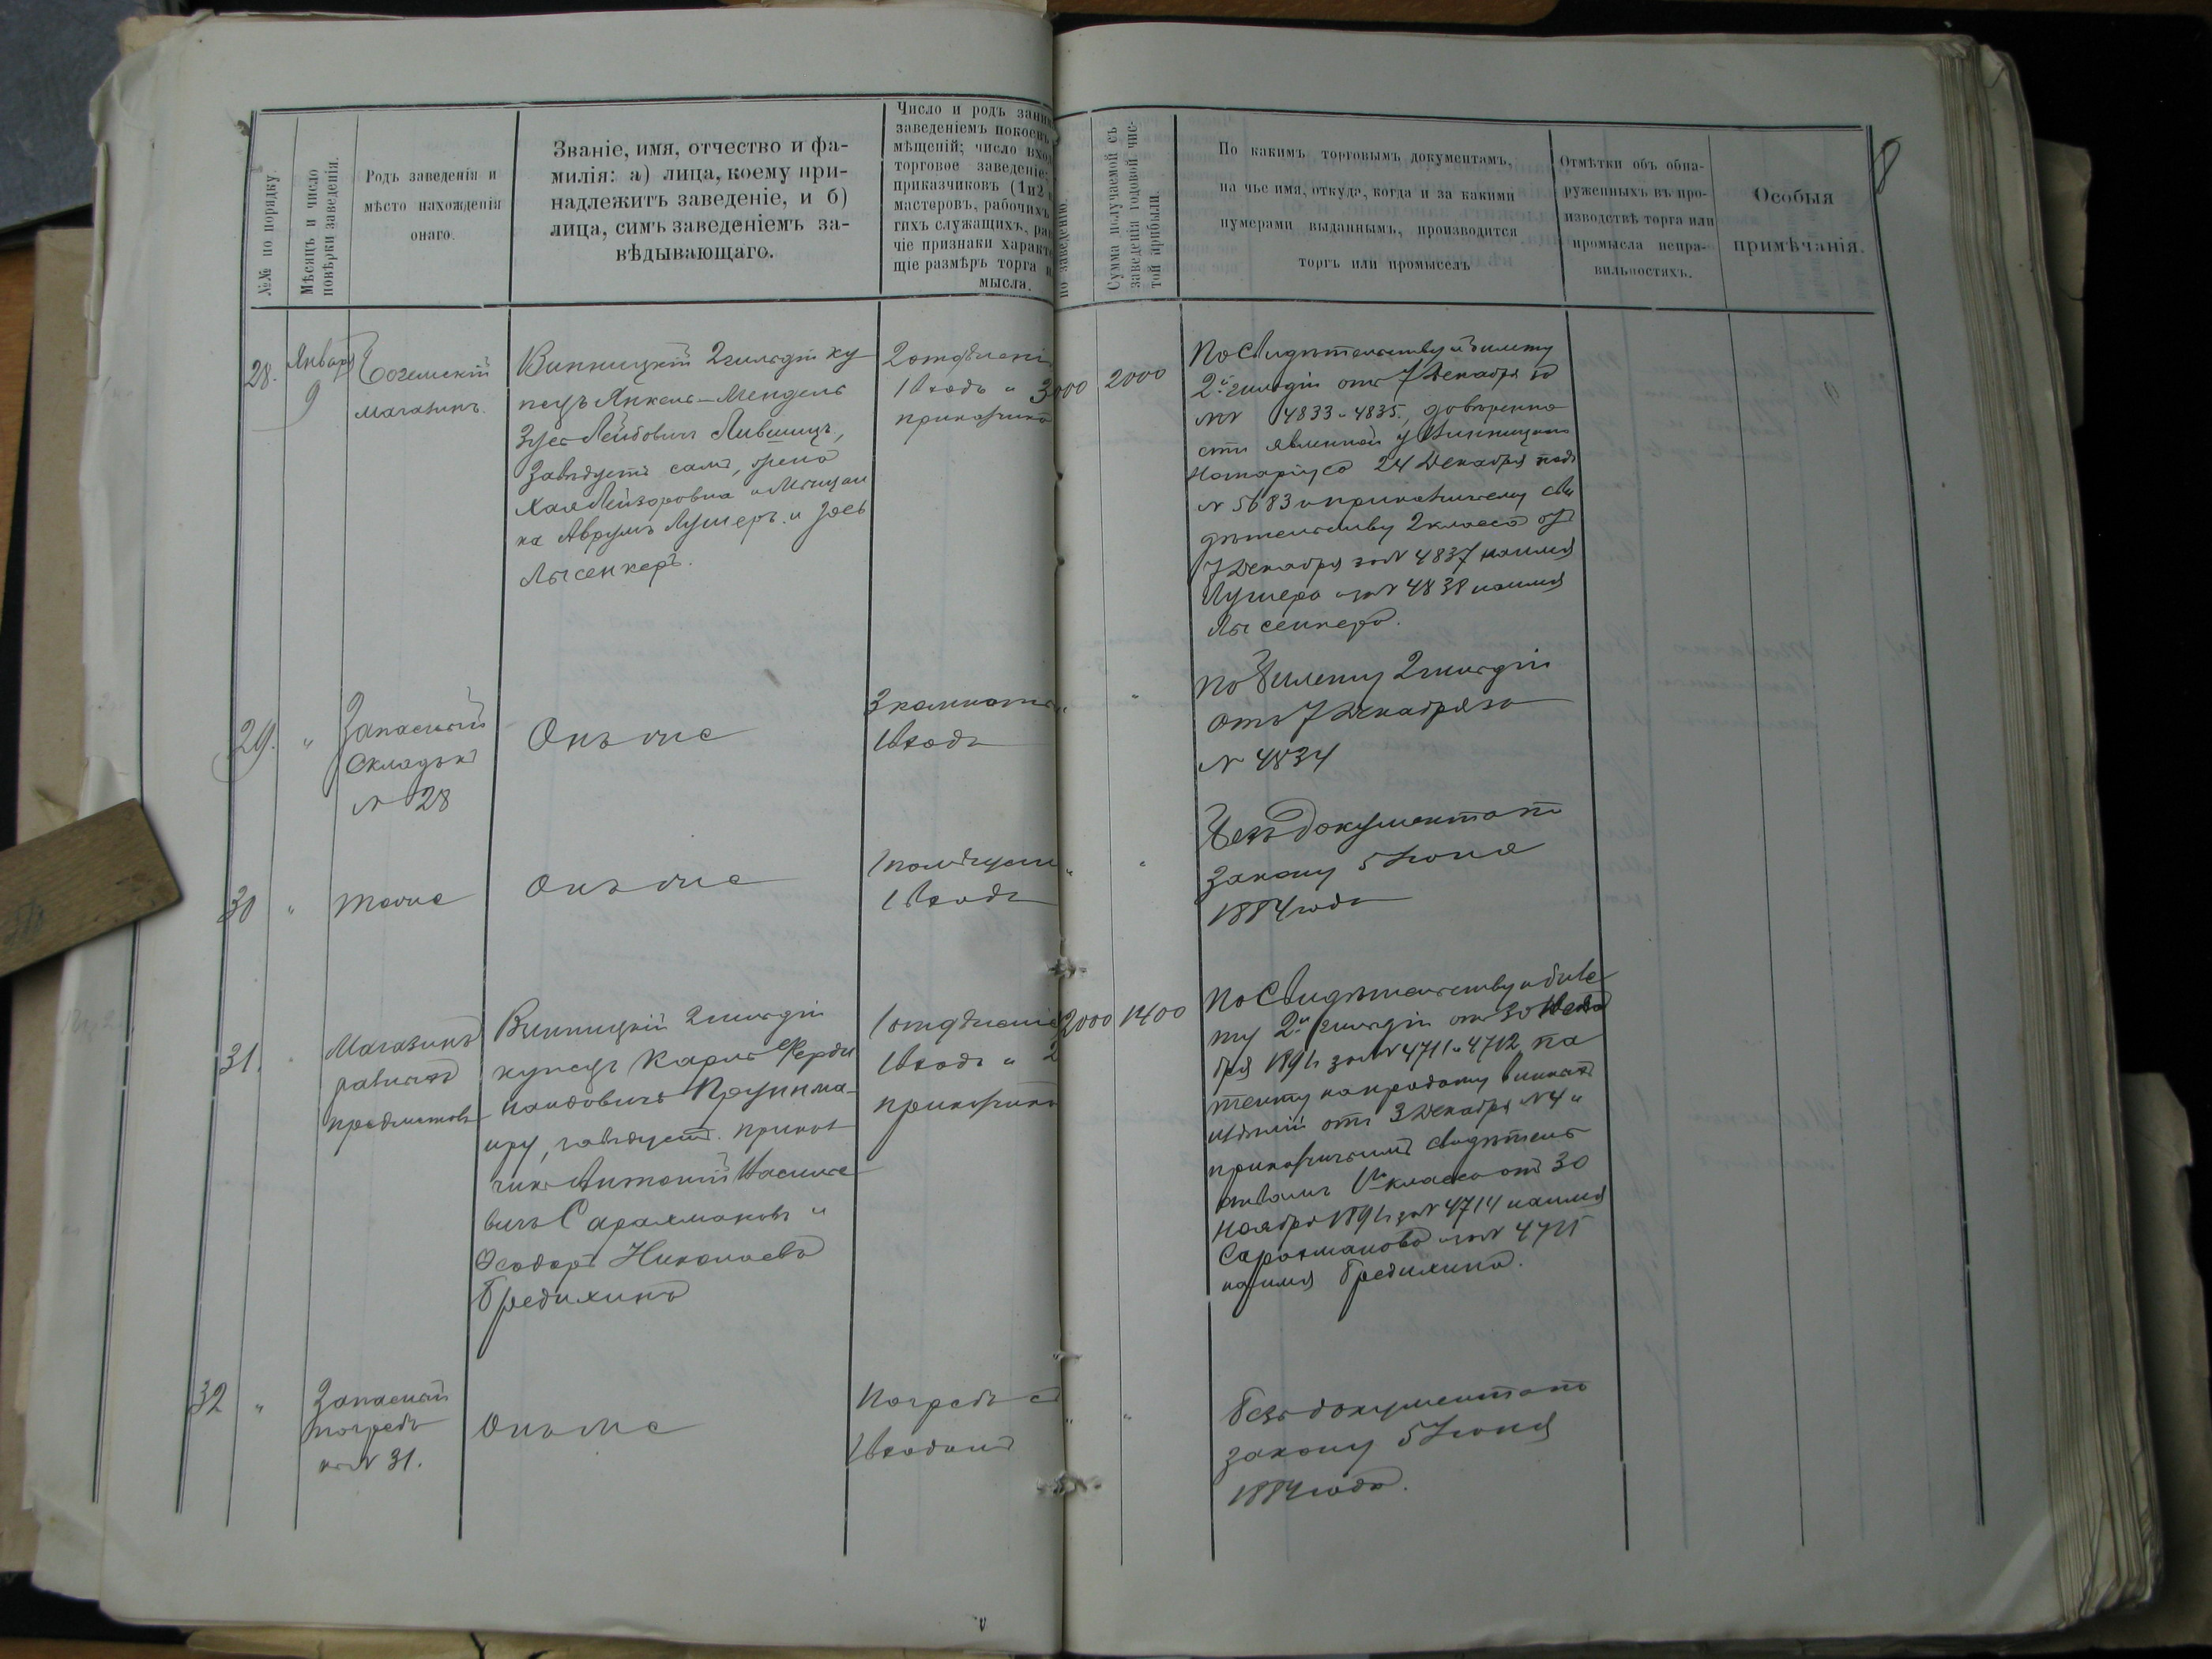 №№ по порядку.
Мѣсяцъ и число
повѣрки заведенія.
Родъ заведенія и
мѣсто нахожденія
онаго.
Званіе, имя, отчество и фа-
милія: а) лица, коему при-
надлежитъ заведеніе, и б)
лица, симъ заведеніемъ за-
вѣдывающаго.
Число и родъ заним
заведеніемъ покоевъ
мѣщеній; число вхо
торговое заведеніе;
приказчиковъ (1 и 2
мастеровъ, рабочихъ
гихъ служащихъ,
чіе признаки характ
щіе размѣръ торга и
мысла.
по заведенію.
Сумма получаемой съ
заведенія годовой чис-
той прибыли.
По какимъ торговымъ документамъ,
на чье имя, откуда, когда и за какими
нумерами выданнымъ, производится
торгъ или промыселъ
Отмѣтки объ обна-
руженныхъ въ про-
изводствѣ торга или
промысла непра-
вильностяхъ.
Особыя
примѣчанія.
8
28.
Января
9
магазинъ.
Винницкій 2 гильдіи ку
пецъ Янкель-Мендель
Лейбовичъ Лившицъ,
Завѣдуетъ самъ, жена
Хая Лейзоровна и Мѣщан
на Аврумъ Лушеръ и
Лысенкеръ.
2 отдѣленія
1 входъ и
прикащика
3000
2000
По Свидѣтельству и билету
2й гильдіи отъ 7 Декабря за
№№ 4833 и 4835, довѣренно
сти явленной у Винницкаго
Нотаріуса 24 Декабря подъ
№ 5683 и прикащичьему сви
дѣтельству 2 класса отъ
7 Декабря за № 4837 на имя
Лушера и за № 4838 на имя
Лысенкера.
29.
"
Запасный
Складъ къ
№ 28
Онъ же
3 комнаты
1 входъ
"
"
По билету 2 гильдіи
отъ 7 Декабря за
№ 4834
30
"
тоже
Онъ же
1 помѣщеніе
1 входъ
"
"
Безъ документа по
закону 5 Іюня
1884 года
31.
Магазинъ
разныхъ
предметовъ
Винницкій 2 гильдіи
купецъ Карлъ Ферди
нандовичъ
завѣдуютъ приказ
чикъ Антоній Василье
вичъ Сарахмановъ и
Ѳеодоръ Николаевъ
Бредихинъ
1 отдѣленіе
1 входъ и 2
прикащика
2000
1400
По Свидѣтельству и биле
ту 2й гильдіи отъ 30 Нояб
ря 1891 за №№ 4711 и 4712, па
тенту на продажу винъ
отъ 3 Декабря № 4 и
прикащичьимъ свидѣтель
ствамъ 1го класса отъ 30
Ноября 1891 за № 4714 на имя
Сарахманова и за № 4715
на имя Бредихина.
32
"
Запасный
погребъ
къ № 31.
Онъ же
Погребъ съ
1 входомъ
"
"
Безъ документа по
закону 5 Іюня
1884 года.